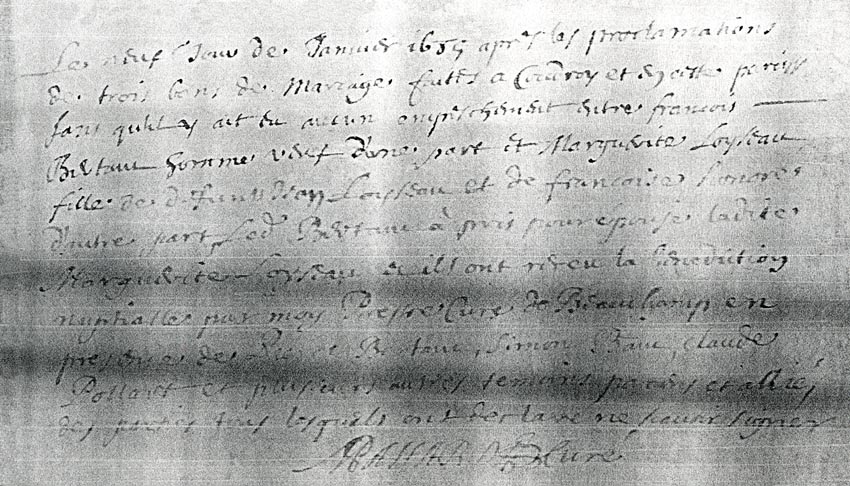 Le neuf Jour de Januier 1685 apres les proclamations
de trois bans de Mariage faittes a Coudroy et en cette paroiss
sans quil y ait eu aucun empeschement entre francois
Bertau homme veuf d'une part et Marguerite Loyseau
fille de defunt Jean Loyseau et de francoise
d'autre part Led Bertau à pris pour epouse ladite
Marguerite Loyseau et ils ont receu la benediction
nuptialle par moy Prestre Cure de Beauchamp en
presence de Bertau, Simon Bau, Claude
Pollauet et plusieurs autres temoins parens et alliés
des parties tous lesquels ont declare ne scauoir signer
Cure